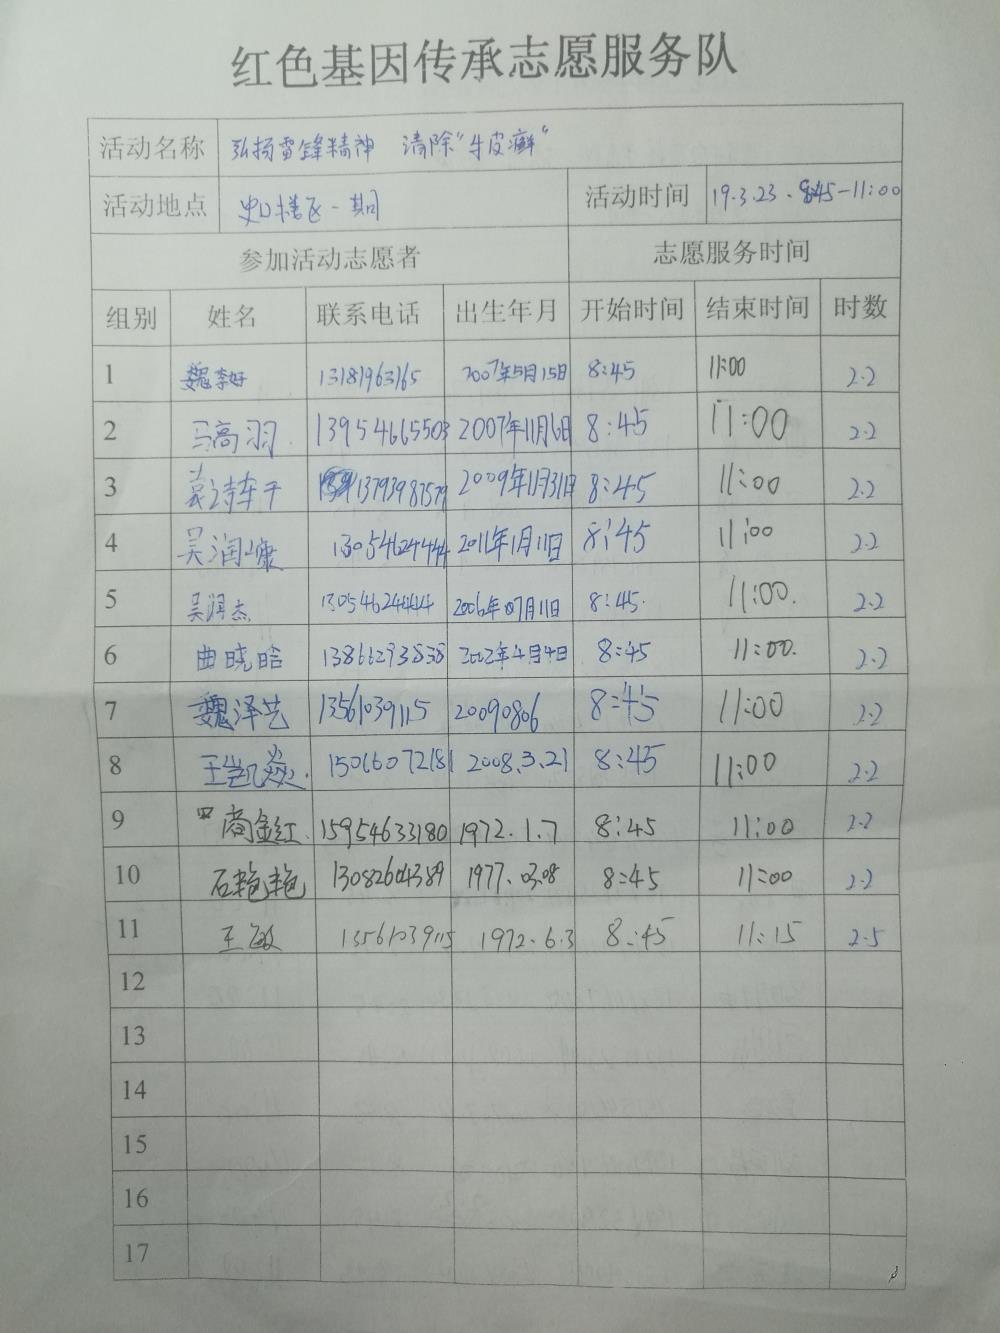 红色基因传承志愿服务队
活动名称 弘扬雷锋精神 清除"牛皮癣"
活动地点 史口楼区一期 活动时间 19.3.23. 8:45-11:00
参加活动志愿者 志愿服务时间
组别 姓名 联系电话 出生年月 开始时间 结束时间 时数
1 魏李好 13181963165 2007年5月15日 8:45 11:00 2.2
2 马高羽 13954665503 2007年11月6日 8:45 11:00 2.2
3 袁诗 13793987579 2009年11月31日 8:45 11:00 2.2
4 吴润慷 13054624444 2011年1月11日 8:45 11:00 2.2
5 吴润杰 13054624444 2006年07月11日 8:45. 11:00. 2.2
6 曲晓晗 13866293838 2002年4月4日 8:45 11:00. 2.2
7 魏泽艺 13561039115 20090806 8:45 11:00 2.2
8 王凯焱. 15066072181 2008.3.21 8:45 11:00 2.2
9 商金红. 15954633180 1972.1.7 8:45 11:00 2.2
10 石艳艳 13082604389 1977.03.08 8:45 11:00 2.2
11 王敏 13561039115 1972.6.3 8:45 11:15 2.5
12
13
14
15
16
17